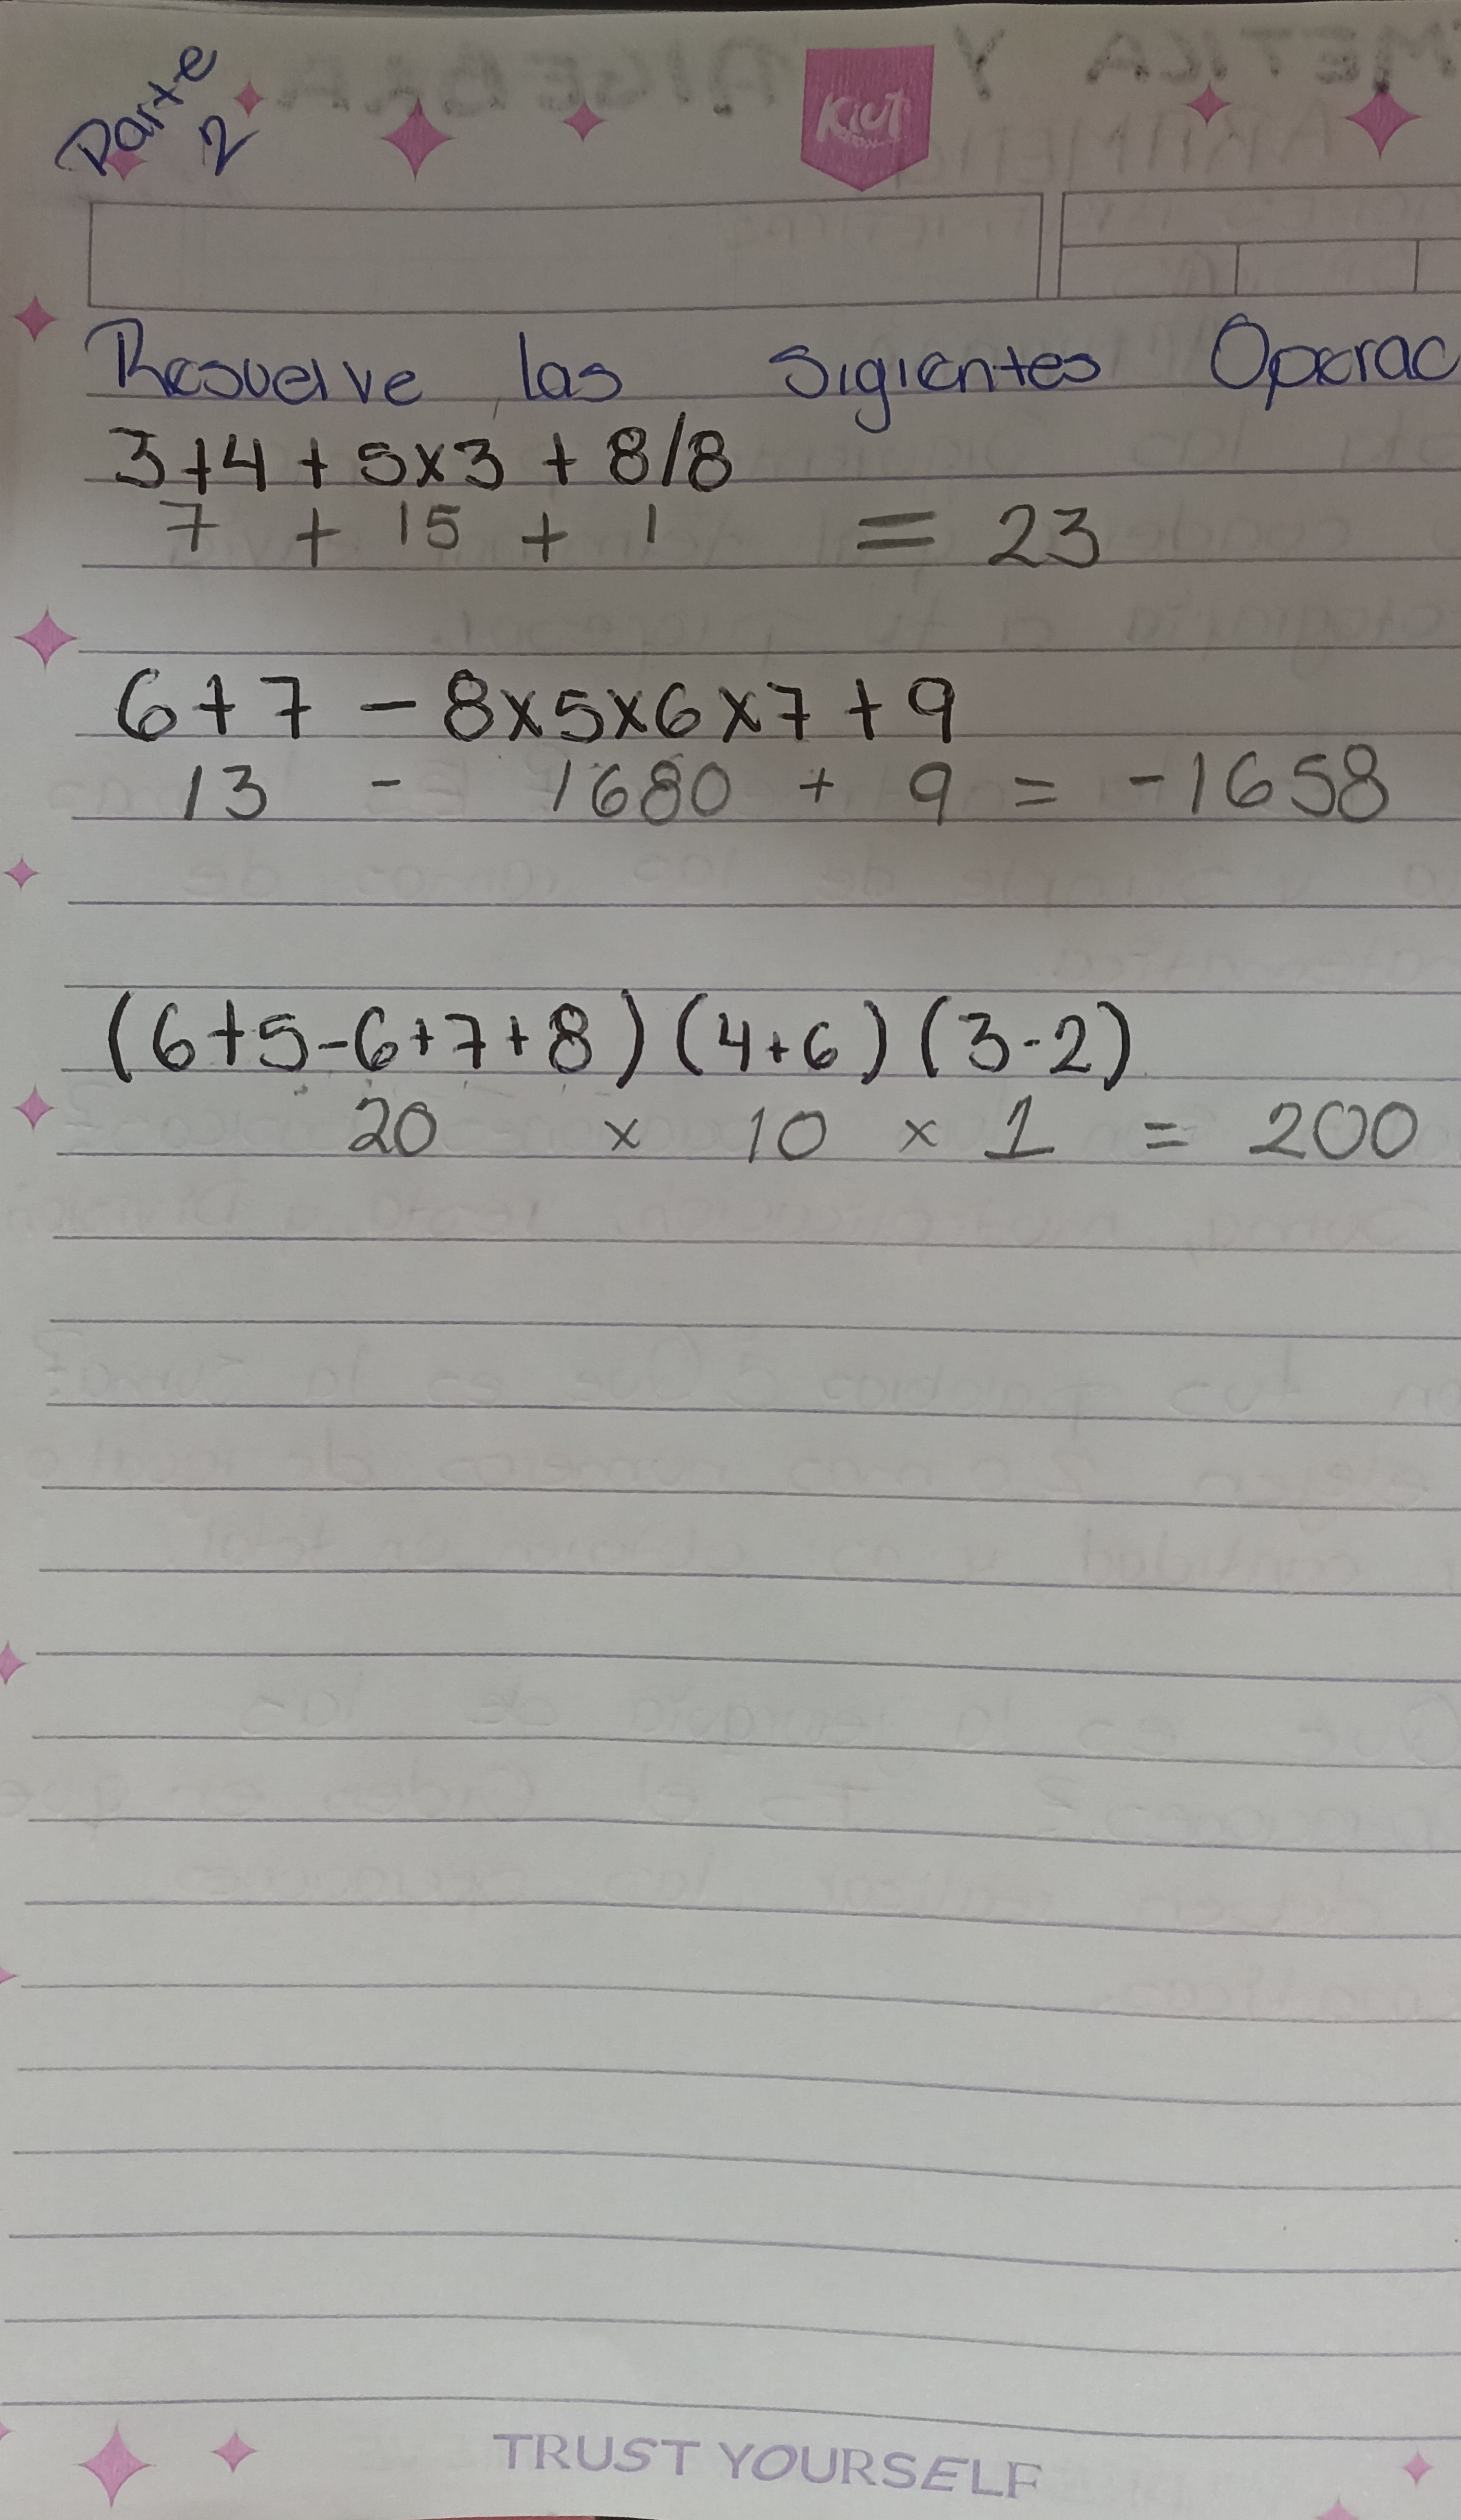 Parte
2
Kiut
Resuelve las sigientes Operac
3+4 + 5x3 + 8/8
7 + 15 + 1 = 23
6+7 - 8x5x6x7+9
13 - 1680 + 9 = -1658
(6+5-6+7+8)(4+6)(3-2)
20 x 10 x 1 = 200
TRUST YOURSELF